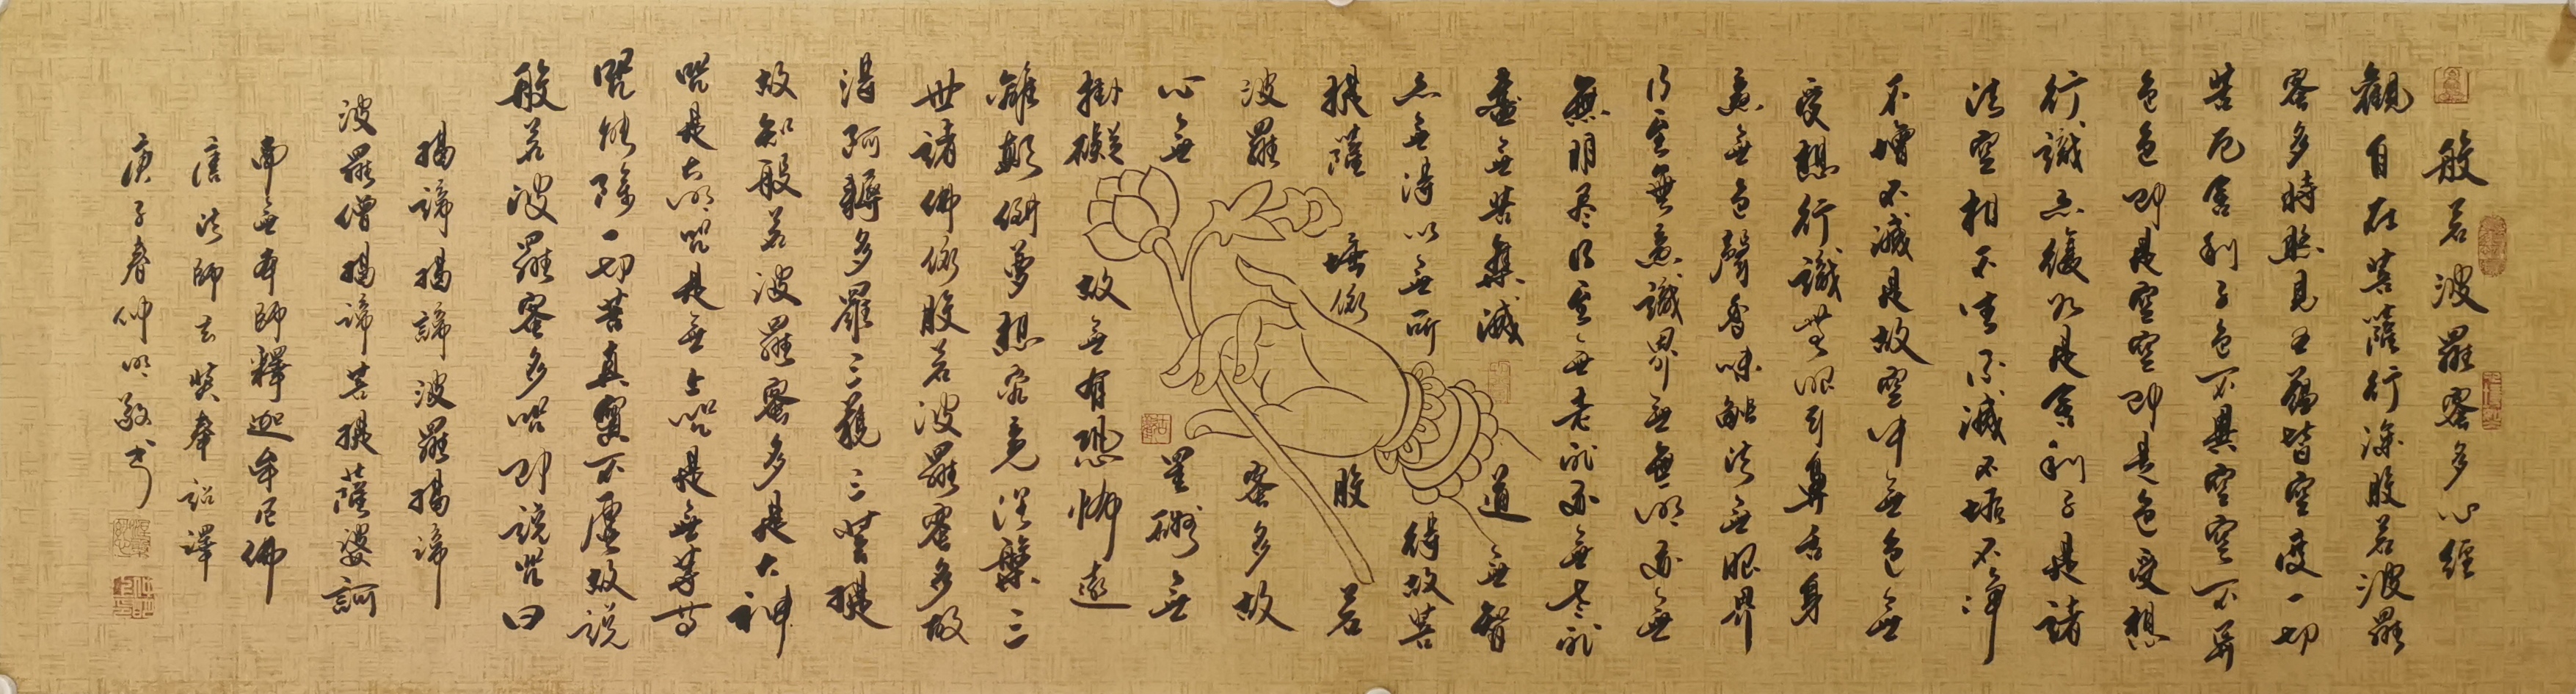 般若波羅蜜多心經
觀自在菩薩行深般若波羅
蜜多時照見五蘊皆空度一切
苦厄舍利子色不異空空不異
色色即是空空即是色受想
行識亦復如是舍利子是諸
法空相不生不滅不垢不淨
不增不減是故空中無色無
受想行識無眼耳鼻舌身
意無色聲香味觸法無眼界
乃至無意識界無無明亦無
無明尽乃至無老死亦無老死
盡無苦集滅道無智
亦無得以無所得故菩
提薩埵依般若
波羅蜜多故
心無罣礙無
掛礙故無有恐怖遠
離顛倒夢想究竟涅槃三
世諸佛依般若波羅蜜多故
得阿耨多羅三藐三菩提
故知般若波羅蜜多是大神
咒是大明咒是無上咒是無等等
咒能除一切苦真實不虛故說
般若波羅蜜多咒即說咒曰
揭諦揭諦波羅揭諦
波羅僧揭諦菩提薩婆訶
南無本師釋迦牟尼佛
唐法師玄奘奉詔譯
庚子春仲明敬书